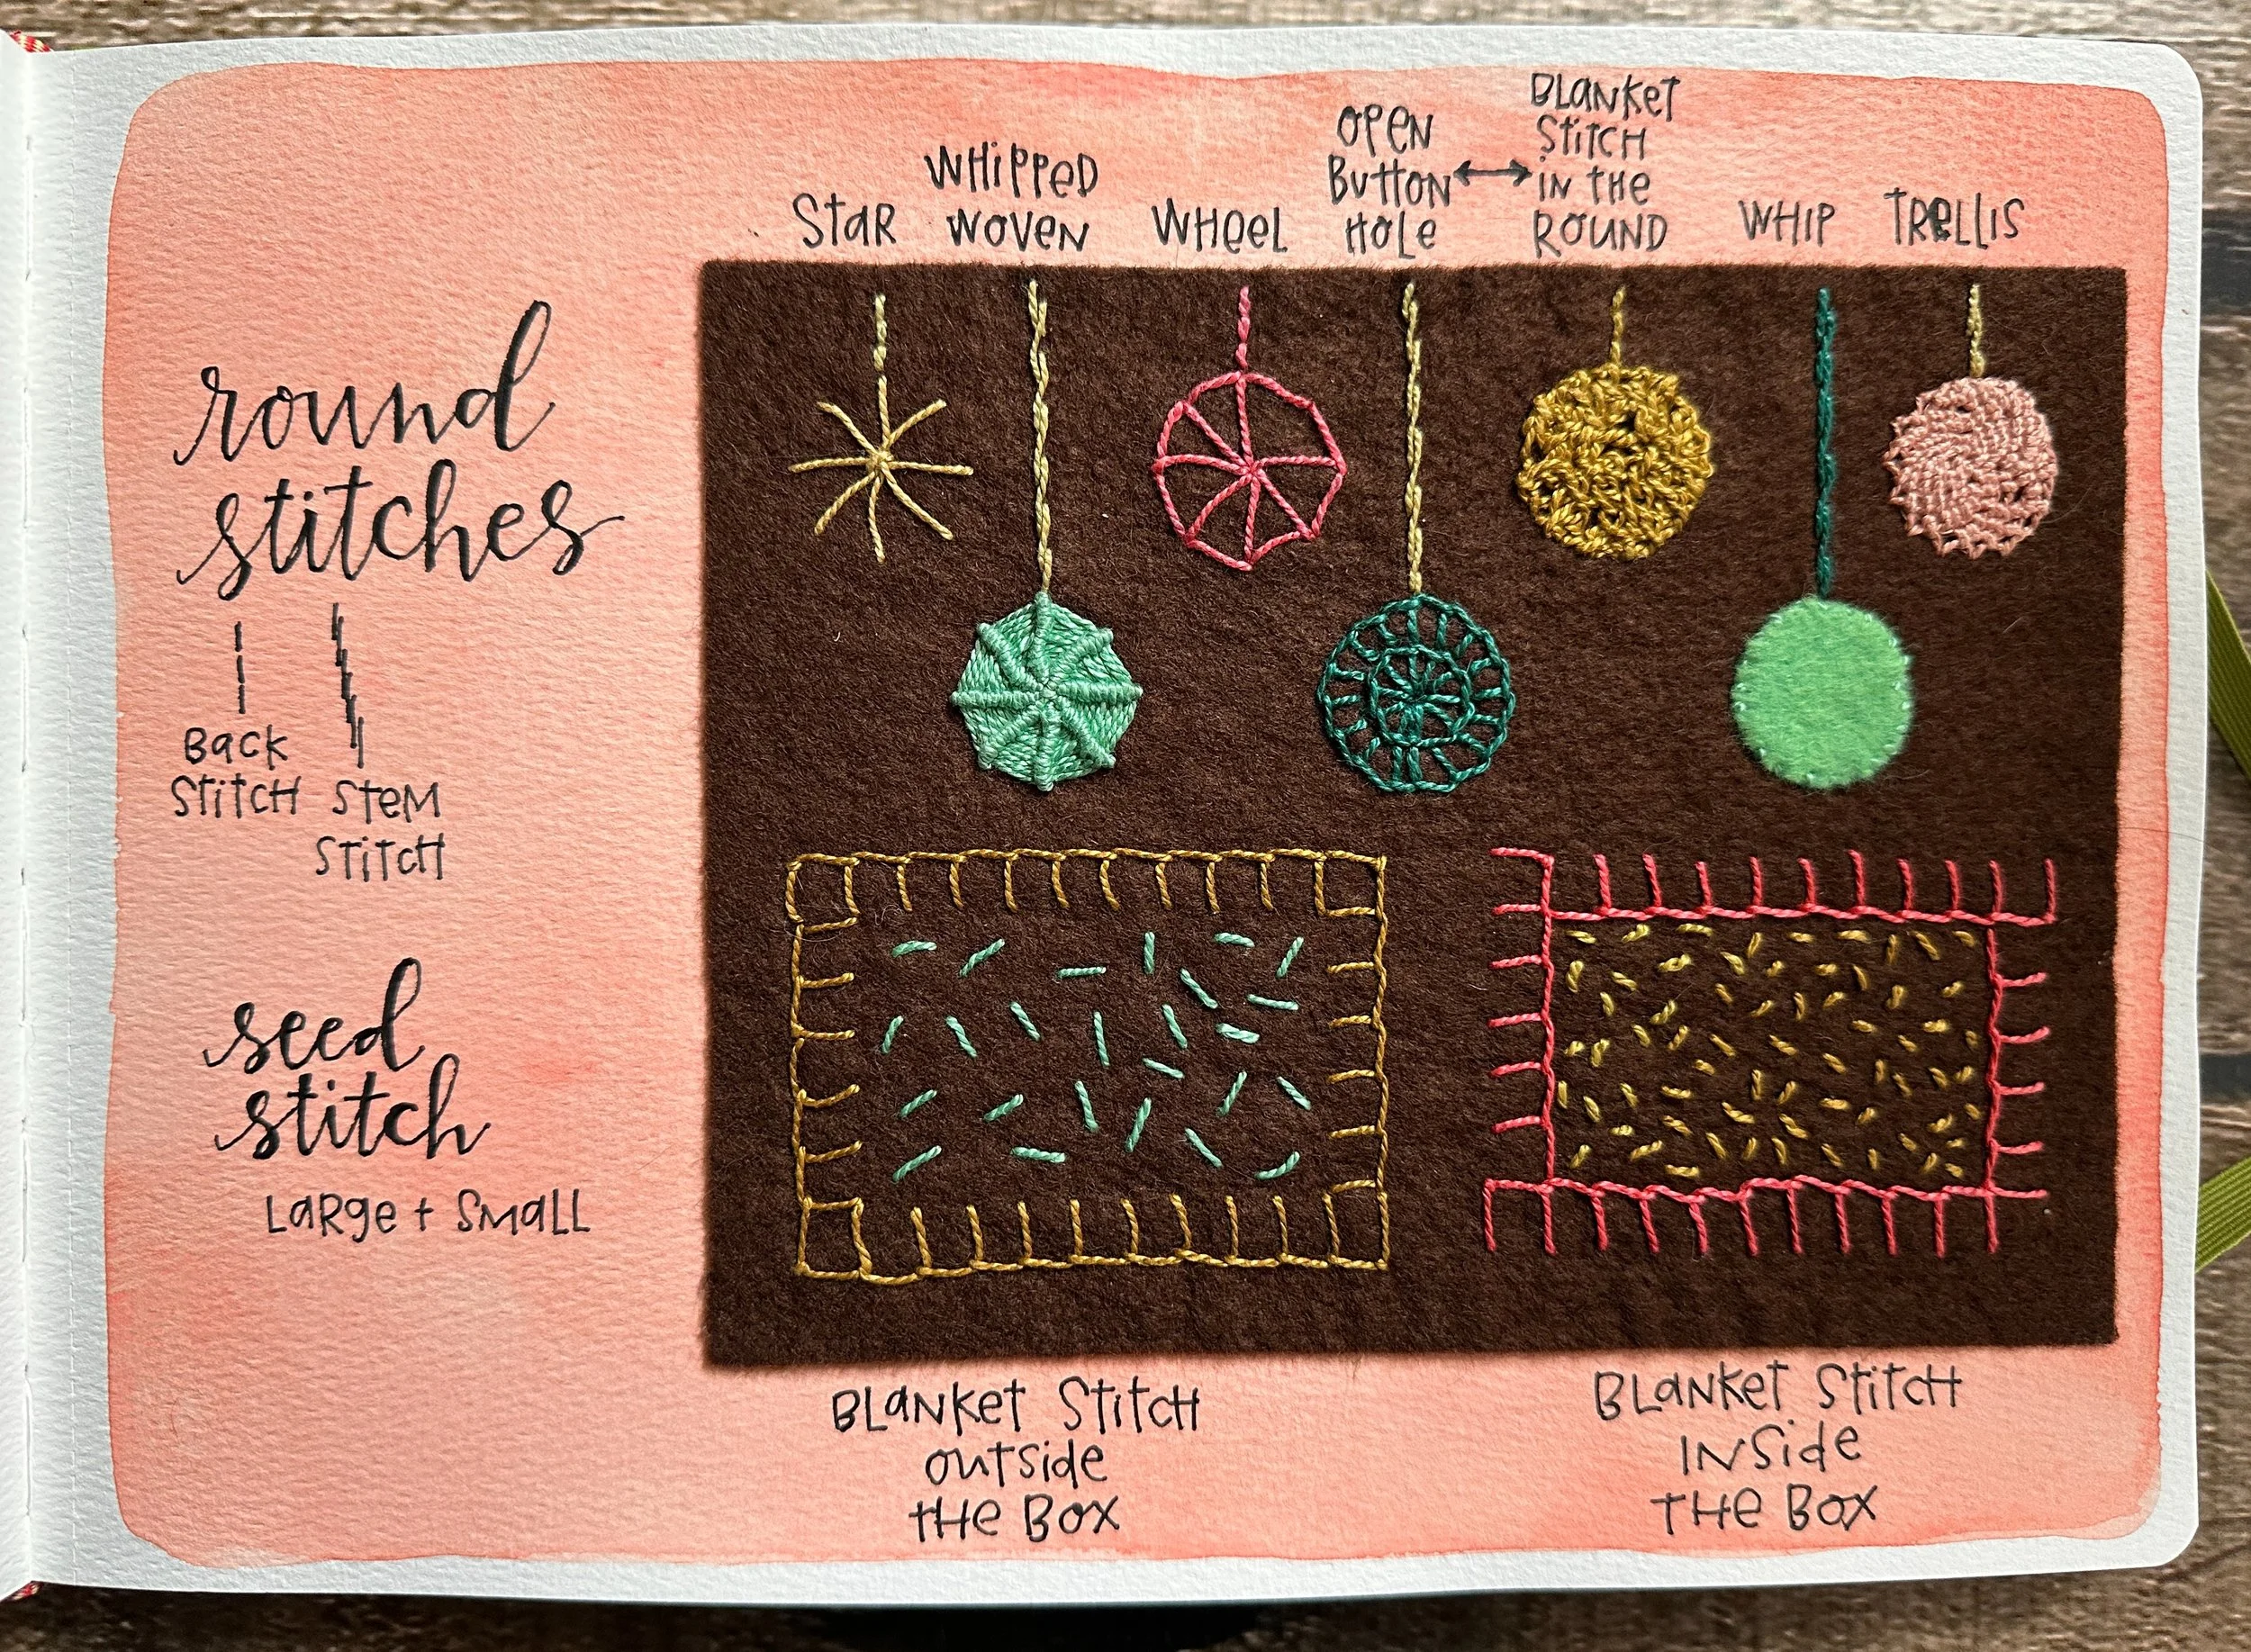 round
stitches
Back
Stitch
Stem
Stitch
seed
stitch
Large + Small
Star
Whipped
Woven
Wheel
Open
Button
Hole
Blanket
Stitch
in the
Round
Whip
Trellis
Blanket Stitch
outside
the Box
Blanket Stitch
Inside
The Box